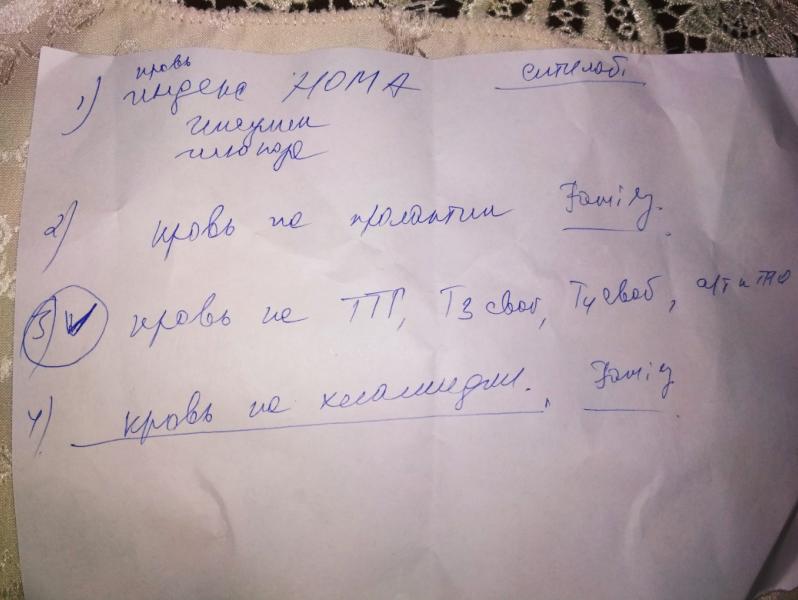 кровь
1) индекс НОМА ситилаб.
инсулин
глюкоза
2) кровь на пролактин Family.
3) кровь на ТТГ, Т3 своб, Т4 своб, а/т к ТПО
4) кровь на хламидии. Family